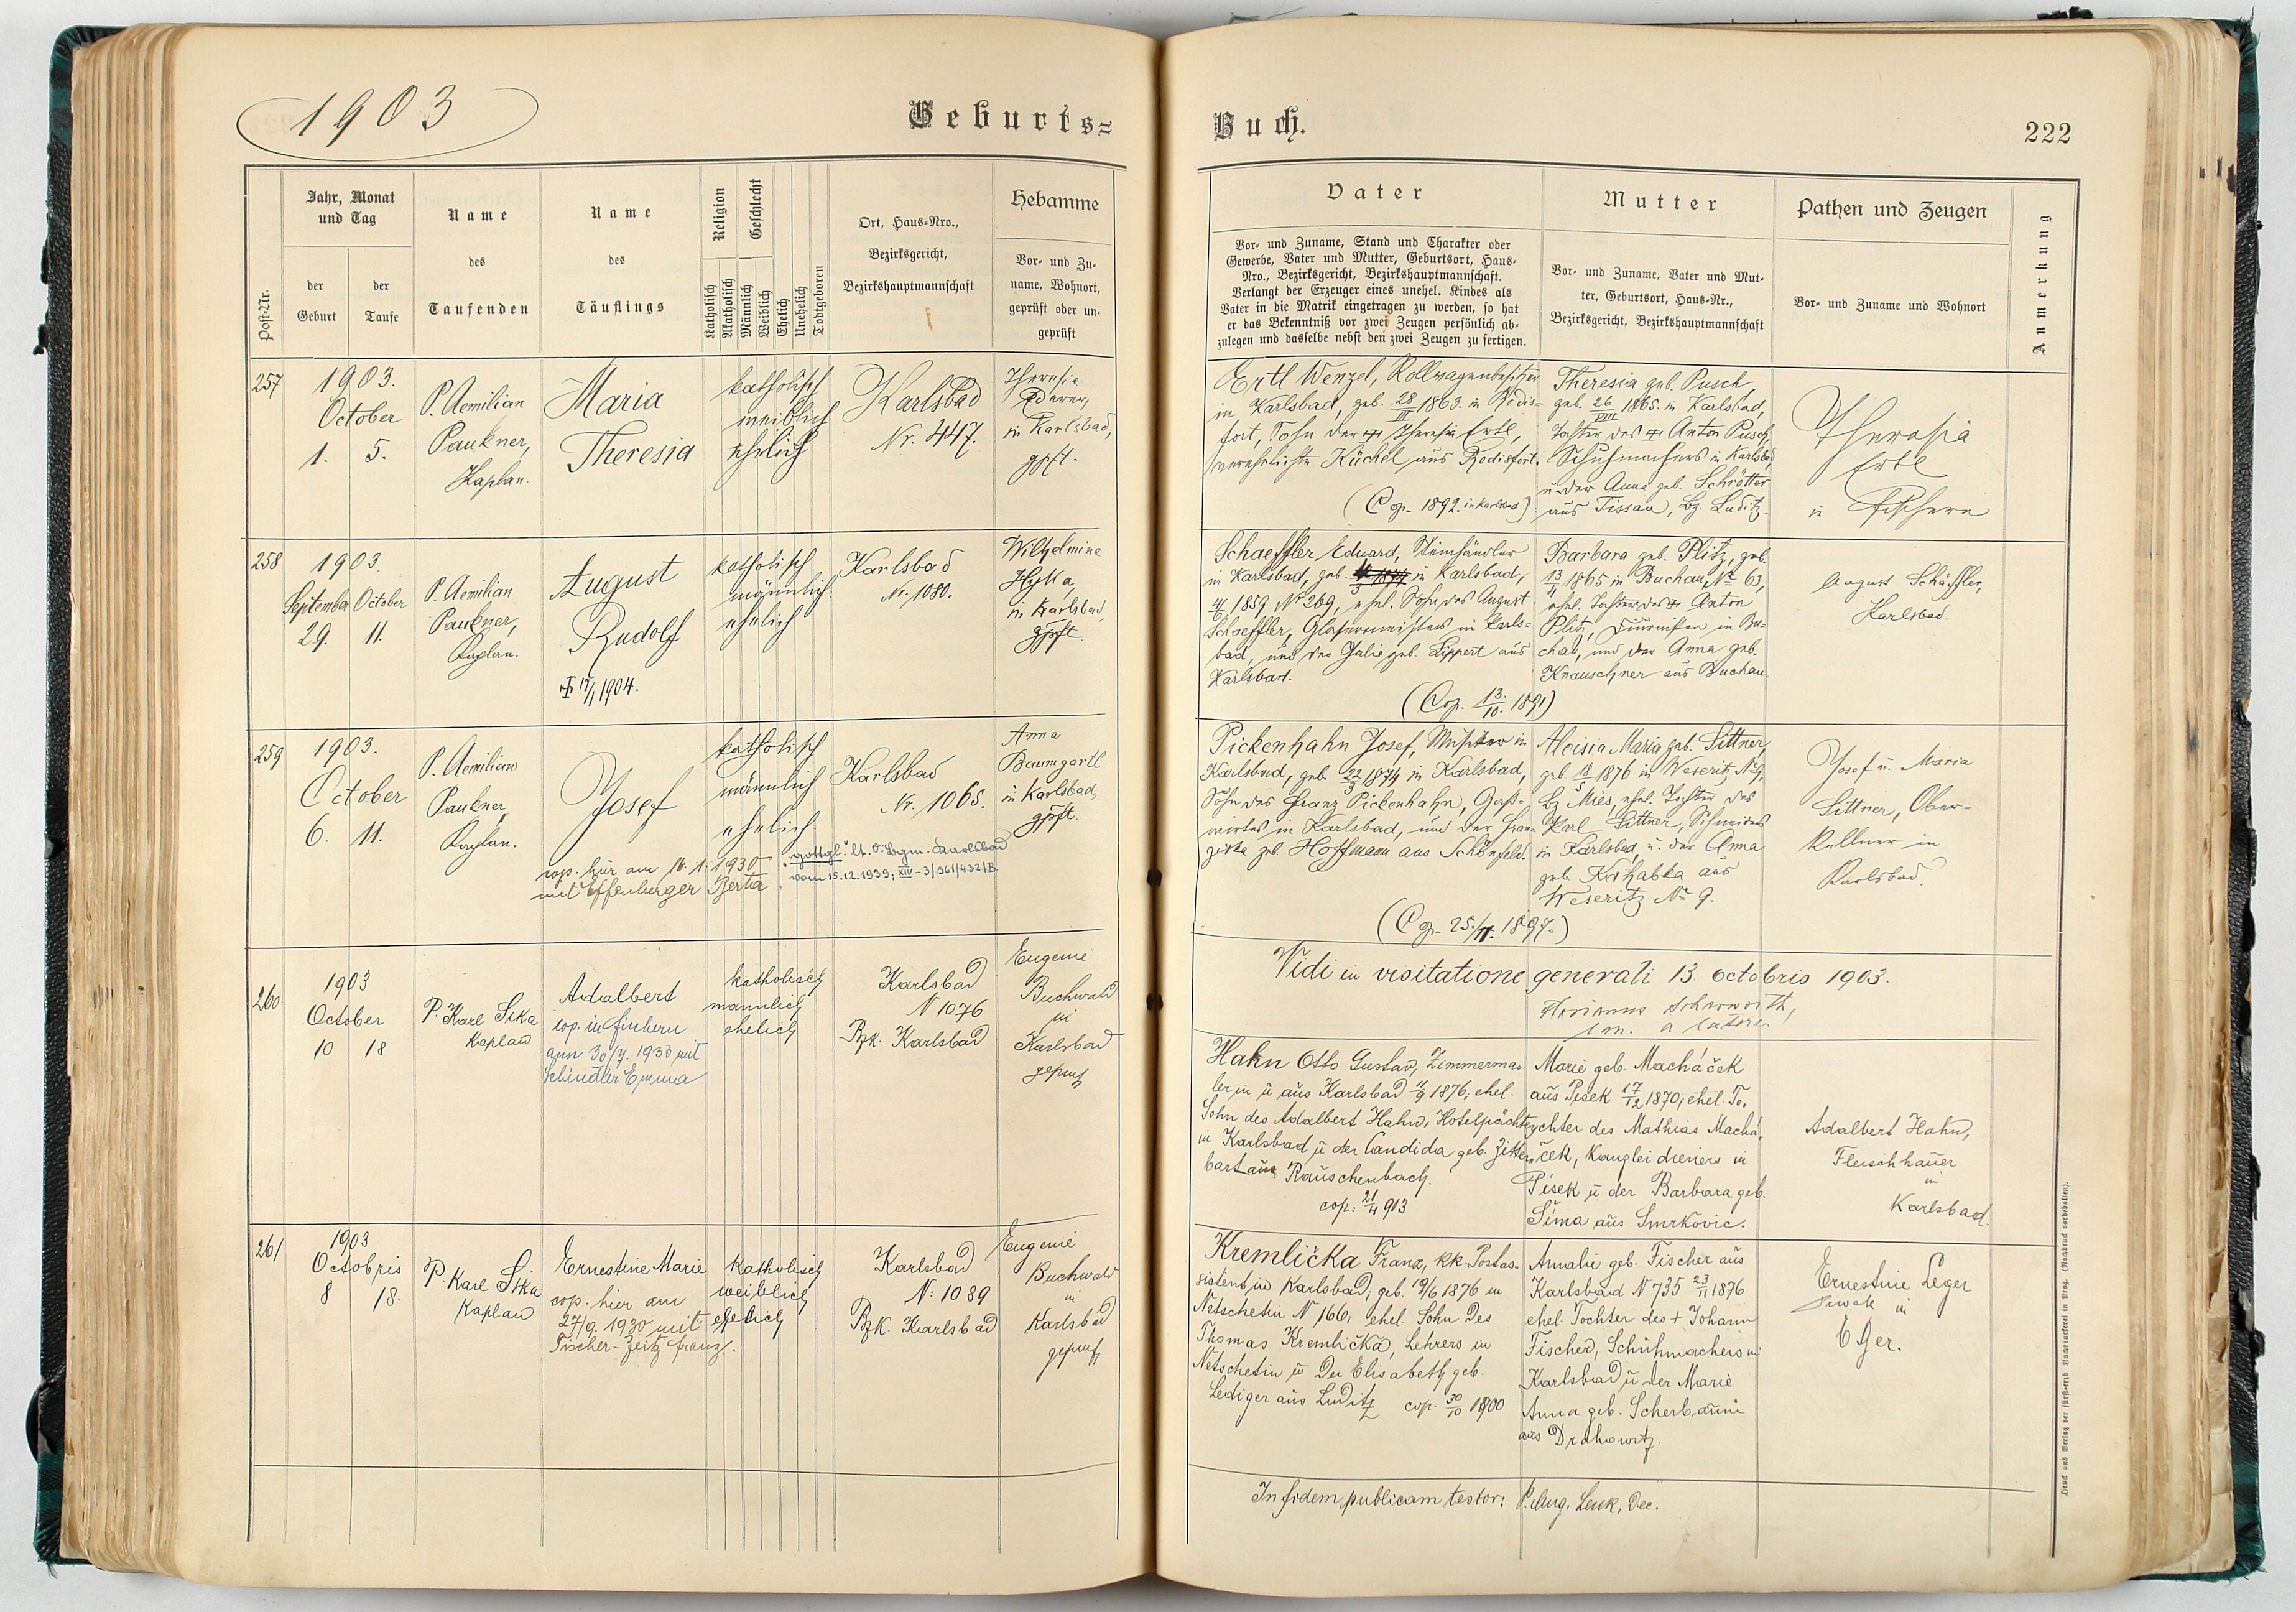 1903
Geburts=
Jahr, Monat
und Tag
der
Geburt
der
Taufe
Post-Nr.
Name
des
Taufenden
Name
des
Täuflings
Religion
Katholisch
Akatholisch
Geschlecht
Männlich
Weiblich
Ehelich
Unehelich
Todtgeboren
Ort, Haus-Nro.,
Bezirksgericht,
Bezirkshauptmannschaft
Hebamme
Vor- und Zu-
name, Wohnort,
geprüft oder un-
geprüft
257
1903.
October
1. 5.
P. Aemilian
Paukner,
Kaplan.
Maria
Theresia
katholisch
weiblich
ehelich
Karlsbad
Nr. 447.
Theresia
in Karlsbad,
gpft.
258
1903.
September October
29. 11.
P. Aemilian
Paukner,
Kaplan.
August
Rudolf
1904.
katholisch
männlich
ehelich
Karlsbad
Nr. 1080.
Wilhelmine
Hyka,
in Karlsbad,
gpft.
259
1903.
October
6. 11.
P. Aemilian
Paukner,
Kaplan.
Josef
cop. hier am 1930
mit Effenberger Berta
katholisch
männlich
ehelich.
"gottgl." lt. O. Bgm. Karlsbad
vom 15.12.1939; XIV-3/961/432/B
Karlsbad
Nr. 1065.
Anna
Baumgartl
in Karlsbad,
gpft.
260
1903
October
10 18
P. Karl Sika
Kaplan
Adalbert
cop. in Fischern
am 30/7. 1938 mit
Schindler Emma
katholisch
männlich
ehelich
Karlsbad
N 1076
Bzk. Karlsbad
Eugenie
Buchwald
in
Karlsbad
geprüft
261
1903
Octobris
8 18.
P. Karl Sika
Kaplan
Ernestine Marie
cop. hier am
27/9. 1930 mit
Fischer-Zeitz Franz.
katholisch
weiblich
ehelich
Karlsbad
N: 1089
Bzk. Karlsbad
Eugenie
Buchwald
in
Karlsbad
geprüft
Buch.
222
Vater
Vor- und Zuname, Stand und Charakter oder
Gewerbe, Vater und Mutter, Geburtsort, Haus-
Nro., Bezirksgericht, Bezirkshauptmannschaft.
Verlangt der Erzeuger eines unehel. Kindes als
Vater in die Matrik eingetragen zu werden, so hat
er das Bekenntniß vor zwei Zeugen persönlich ab-
zulegen und dasselbe nebst den zwei Zeugen zu fertigen.
Mutter
Vor- und Zuname, Vater und Mut-
ter, Geburtsort, Haus-Nr.,
Bezirksgericht, Bezirkshauptmannschaft
Pathen und Zeugen
Vor- und Zuname und Wohnort
Anmerkung
Ertl Wenzel, Rollwagenbesitzer
in Karlsbad, geb. 28/III 1863. in Rodis-
fort, Sohn der Theresia Ertl,
verehelichte Küchel aus Rodisfort.
(Cop. 1892. in Karlsbad)
Theresia geb. Pusch,
geb. 26/VIII 1865. in Karlsbad,
Tochter des Anton Pusch,
Schuhmachers in Karlsbad,
u. der Anna geb. Schrötter
aus Tissau, Bz. Luditz.
Theresia
Ertl
in Fischern
Schaeffler Eduard, Steinhändler
in Karlsbad, geb. in Karlsbad,
1859 Nr 269, ehel. Sohn des August
Schaeffler, Glasermeisters in Karls-
bad, und der Julie geb. Lippert aus
Karlsbad.
(Cop. 13./10. 1891)
Barbara geb. Plitz, geb.
1865 in Buchau, Nr. 63,
ehel. Tochter des Anton
Plitz, in Bu-
chau, und der Anna geb.
Knauschner aus Buchau.
August Schäffler,
Karlsbad.
Pickenhahn Josef, Musiker in
Karlsbad, geb. 22/3 1874 in Karlsbad,
Sohn des Franz Pickenhahn, Gast-
wirtes in Karlsbad, und der Fran-
ziska geb. Hoffmann aus Schönfeld.
(Cop. 25./11. 1897.)
Aloisia Maria geb. Sittner,
geb. 18/5 1876 in Weseritz Nr 9,
Bz. Mies, ehel. Tochter des
Karl Sittner, Schneiders
in Karlsbad, u. der Anna
geb. aus
Weseritz Nr 9.
Josef u. Maria
Sittner, Ober-
kellner in
Karlsbad.
Vidi in visitatione generali 13. octobris 1903.
a latere.
Hahn Otto Gustav, Zimmerma-
ler in u aus Karlsbad 11/9 1876, ehel.
Sohn des Adalbert Hahn, Hotelpächters
in Karlsbad u der Candida geb. Zitter-
bart aus Rauschenbach.
cop: 21/4 903
Marie geb. Macháček
aus Pisek 17/12 1870, ehel. To-
chter des Mathias Machá-
ček, Kanzleidieners in
Pisek u der Barbara geb.
Šíma aus Smrkovic.
Adalbert Hahn,
Fleischhauer
in
Karlsbad.
Kremlička Franz, kk Postas-
sistent in Karlsbad, geb. 19/6 1876 in
Netschetin N 166, ehel. Sohn des
Thomas Kremlička, Lehrers in
Netschetin u der Elisabeth geb.
Lediger aus Luditz cop. 30/10 1900
Amalie geb. Fischer aus
Karlsbad N 735 23/11 1876
ehel. Tochter des + Johann
Fischer, Schuhmachers in
Karlsbad u der Marie
Anna geb. Scherbaum
aus Drahowitz.
Ernestine Leger
Private in
Eger.
In fidem publicam testor: P. Aug. Lenk, Dec.
Druck und Verlag der fürst-erzb Buchdruckerei in Prag. (Nachdruck vorbehalten).